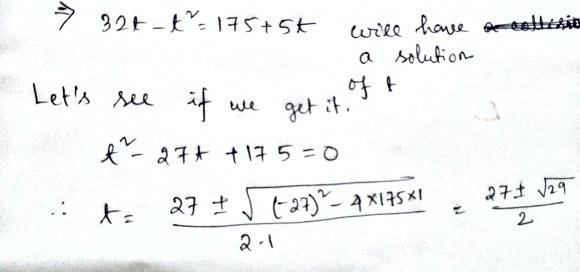 ⇒ 32t - t² = 175 + 5t will have
a solution
of t
Let's see if we get it.
t² - 27t + 175 = 0
∴ t = (27 ± √((-27)² - 4×175×1)) / 2·1 = (27 ± √29) / 2